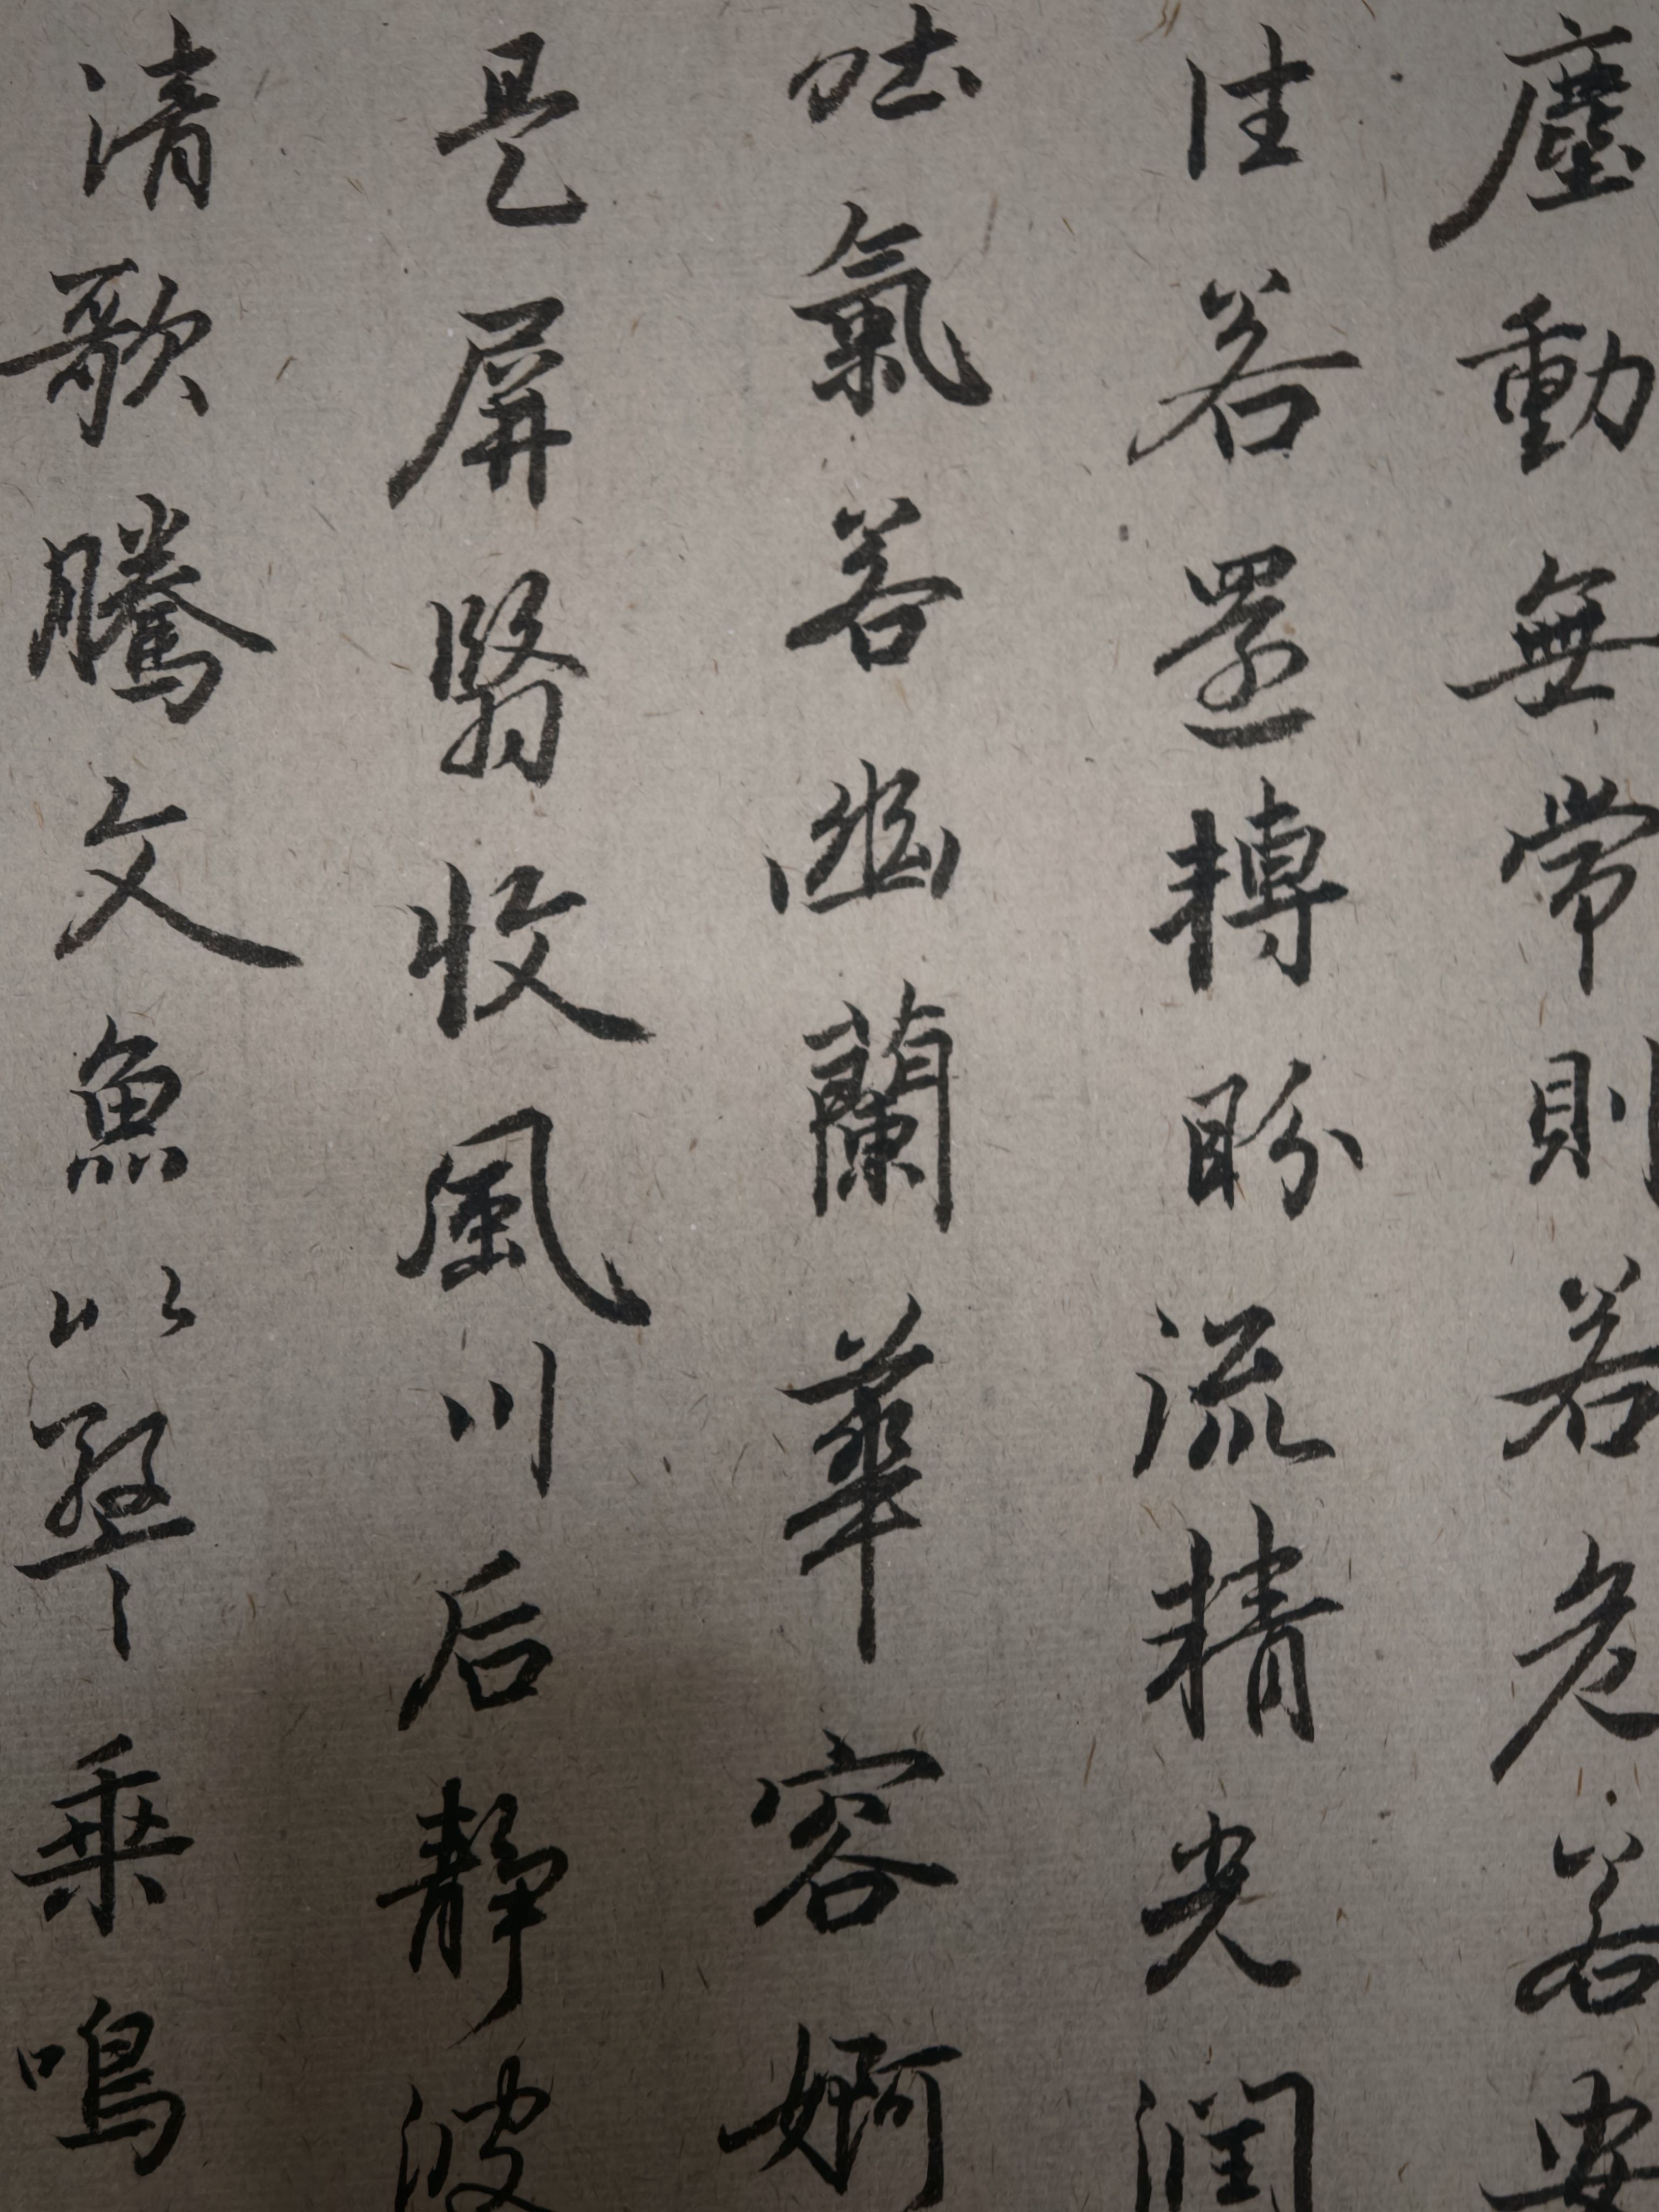 塵動無常則若危若安
往若還轉盼流精光潤
吐氣若幽蘭華容婀
是屏翳收風川后靜波
清歌騰文魚以警乘鳴